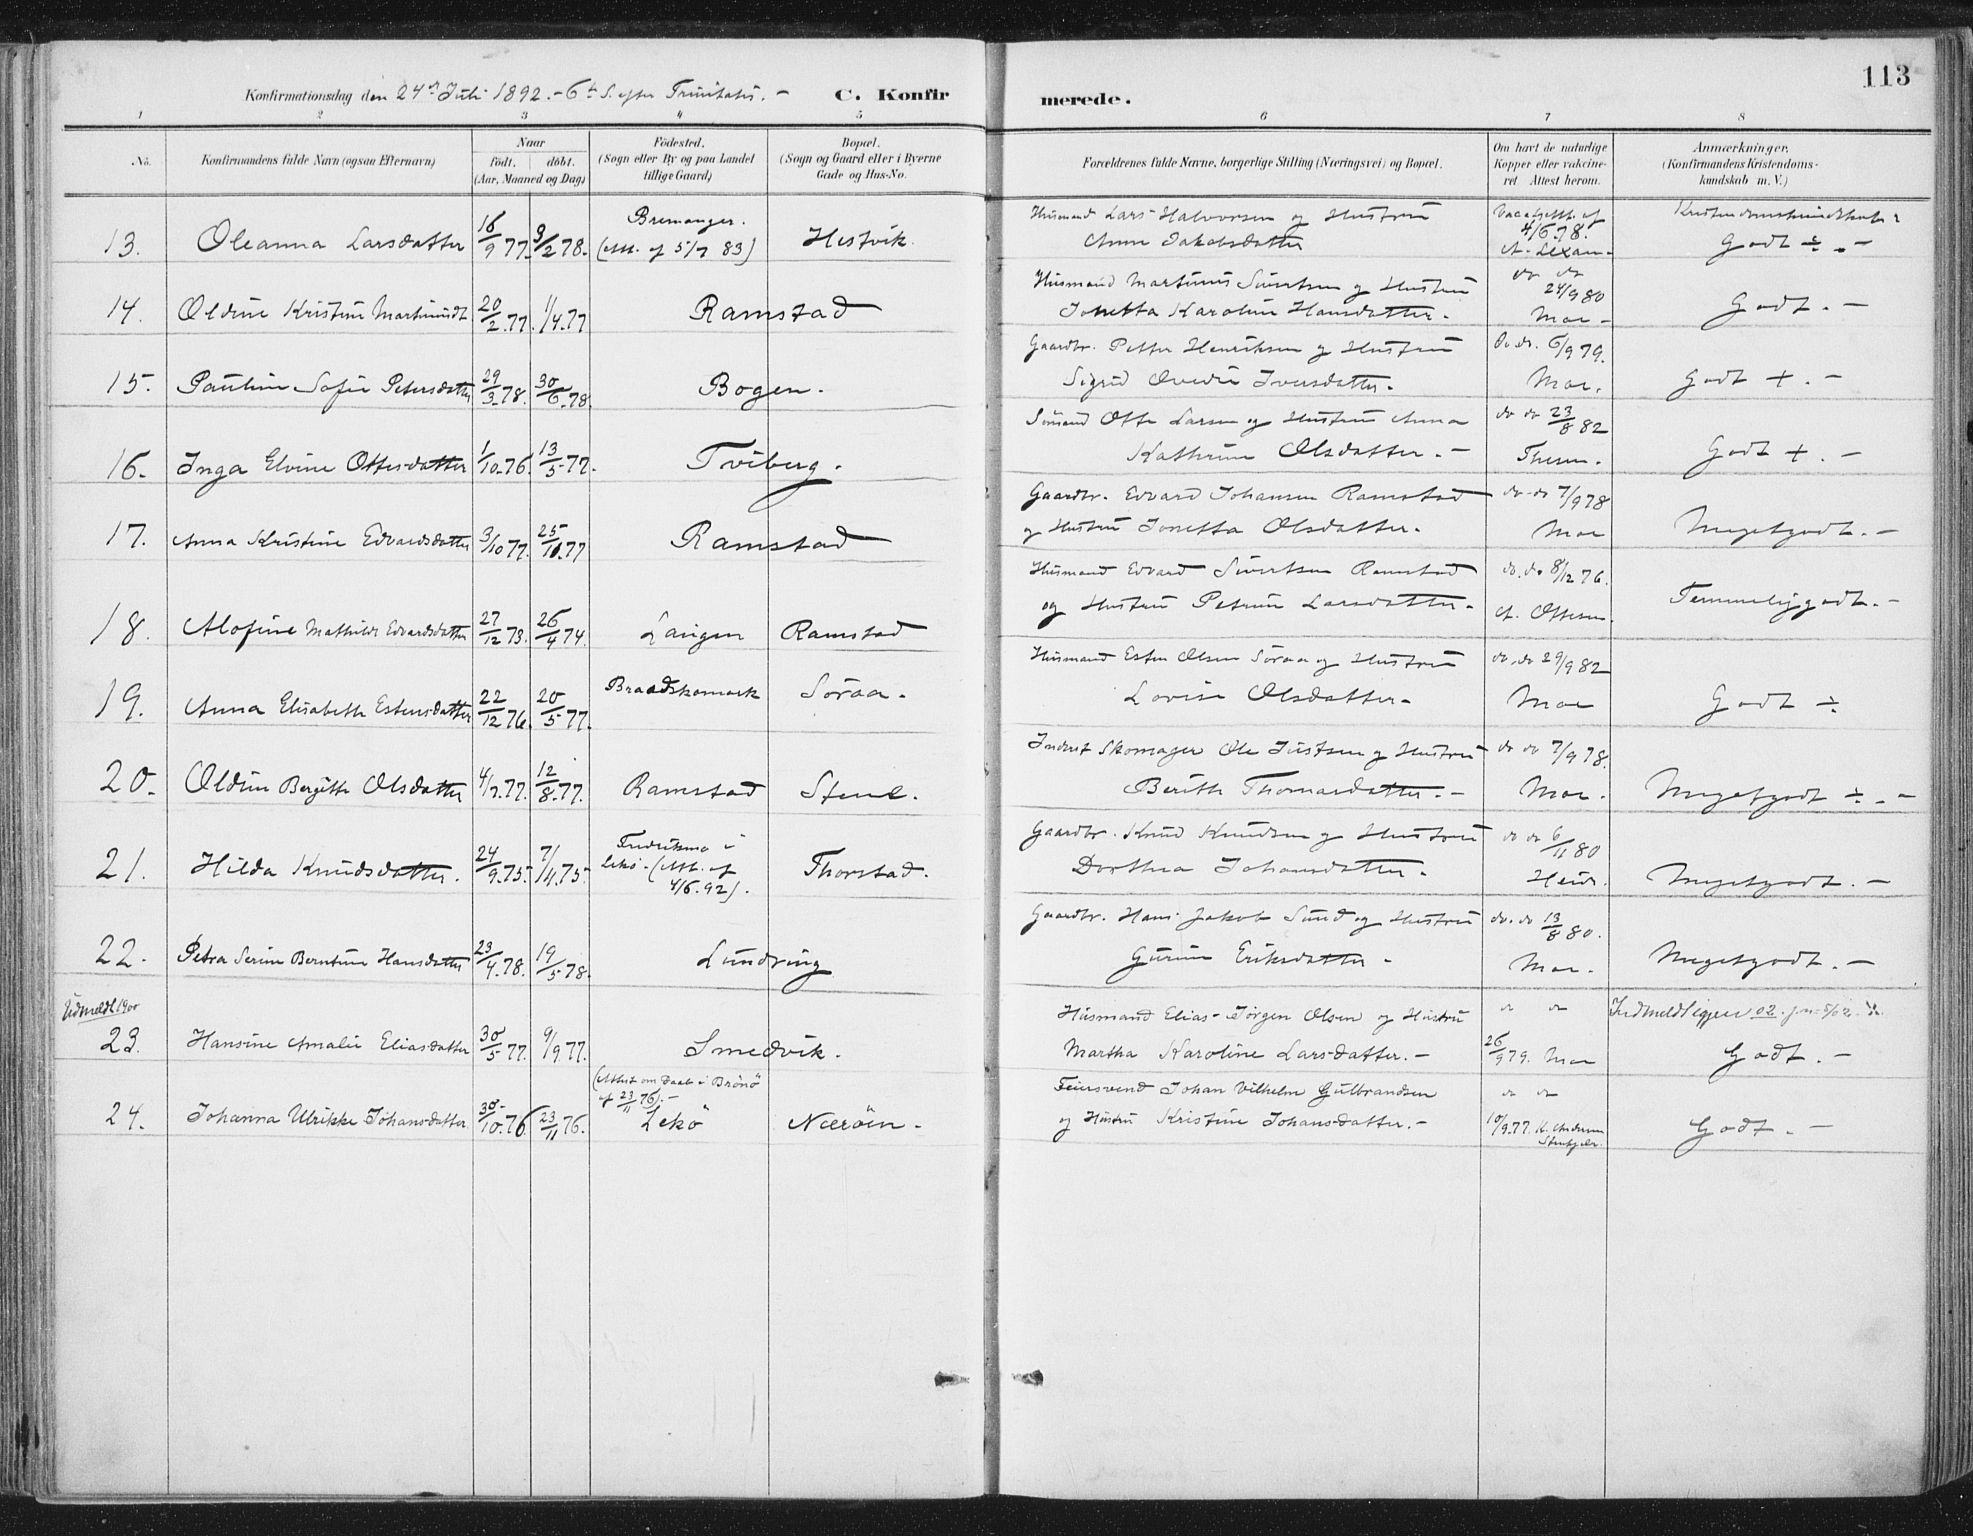 113
Konfirmationsdag den 24de Juli 1892. - 6te S. efter Trinitatis. -
C. Konfirmerede.
1 2 3 4 5 6 7 8
No.
Konfirmandens fulde Navn (ogsaa Efternavn)
Naar
født. døbt.
(Aar, Maaned og Dag)
Fødested.
(Sogn eller By og paa Landet
tillige Gaard)
Bopæl.
(Sogn og Gaard eller i Byerne
Gade og Hus-No.
Forældrenes fulde Navne, borgerlige Stilling (Næringsvei) og Bopæl.
Om havt de naturlige
Kopper eller vakcine-
ret. Attest herom.
Anmærkninger,
(Konfirmandens Kristendoms-
kundskab m. V.)
13. Oleanna Larsdatter 16/9 77. 3/2 78. Bremanger. (Att. af 5/7 83) Hestvik.
Husmand Lars Halvorsen og Hustru
Anne Jakobsdatter
4/6 78.
Godt ÷. -
14. Oldine Kristine Martinusdt 20/2 77. 1/4 77 Ramstad
Husmand Martinus Sivertsen og Hustru
Jonetta Karoline Hansdatter. -
do do 24/9 80
Moe -
Godt. -
15. Pauline Sofie Petersdatter 29/3 78. 30/6 78. Bogen.
Gaardbr. Petter Henriksen og Hustru
Sigrid Ovedie Iversdatter.
do do. 6/9 79.
Moe.
Godt +. -
16. Inga Elvine Ottesdatter 1/10 76. 13/5 77. Tviberg.
Sömand Otte Larsen og Hustru Anna
Kathrine Olsdatter. -
do do 23/8 82
Godt +. -
17. Anna Kristine Edvardsdatter 3/10 77. 25/11 77 Ramstad
Gaardbr. Edvard Johansen Ramstad
og Hustru Jonetta Olsdatter. -
do do 7/9 78
Moe
Megetgodt. -
18. Alofine Mathilde Edvardsdatter 27/12 73. 26/4 74. Laugen Ramstad
Husmand Edvard Sivertsen Ramstad
og Hustru Petrine Larsdatter. -
do. do 8/12 76.
A. Ottesen.
Temmelig godt. -
19. Anna Elisabeth Estensdatter 22/12 76. 20/5 77. Braadskomark Söraa. -
Husmand Esten Olsen Söraa og Hustru
Lovise Olsdatter. -
do. do 29/9 82
Moe
Godt ÷
20. Oldine Bergitte Olsdatter 4/7. 77. 12/8. 77. Ramstad Stene.
Inderst Skomager Ole Justsen og Hustru
Berith Thomasdatter. -
do do 7/9 78.
Moe.
Megetgodt ÷. -
21. Hilda Knudsdatter. 24/9. 75. 7/4. 75. i Lekö. (Att. af 4/6. 92). Thorstad.
Gaardbr. Knud Knudsen og Hustru
Dorthea Johansdatter. -
do do 6/11 80
Megetgodt. -
22. Petra Serine Berntine Hansdatter 23/4. 78. 19/5 78. Lundring
Gaardbr. Hans Jakob Sund og Hustru
Gurine Eriksdatter -
do. do 13/8 80.
Moe.
Megetgodt. -
Udmeldt 1900
23. Hansine Amalie Eliasdatter 30/5 77. 9/9 77. Smedvik.
Husmand Elias Jörgen Olsen og Hustru
Martha Karoline Larsdatter. -
do do
26/9 79. Moe
Godt. -
24. Johanna Ulrikke Johansdatter 30/10. 76. 23/11 76. (Attest om Daab i Brönö af 23/11 76). - Lekö Næröen. -
Feiersvend Johan Vilhelm Gulbrandsen
og Hustru Kristine Johansdatter. -
do do
10/9. 77. K. Andersen
Stenkjær.
Godt. -